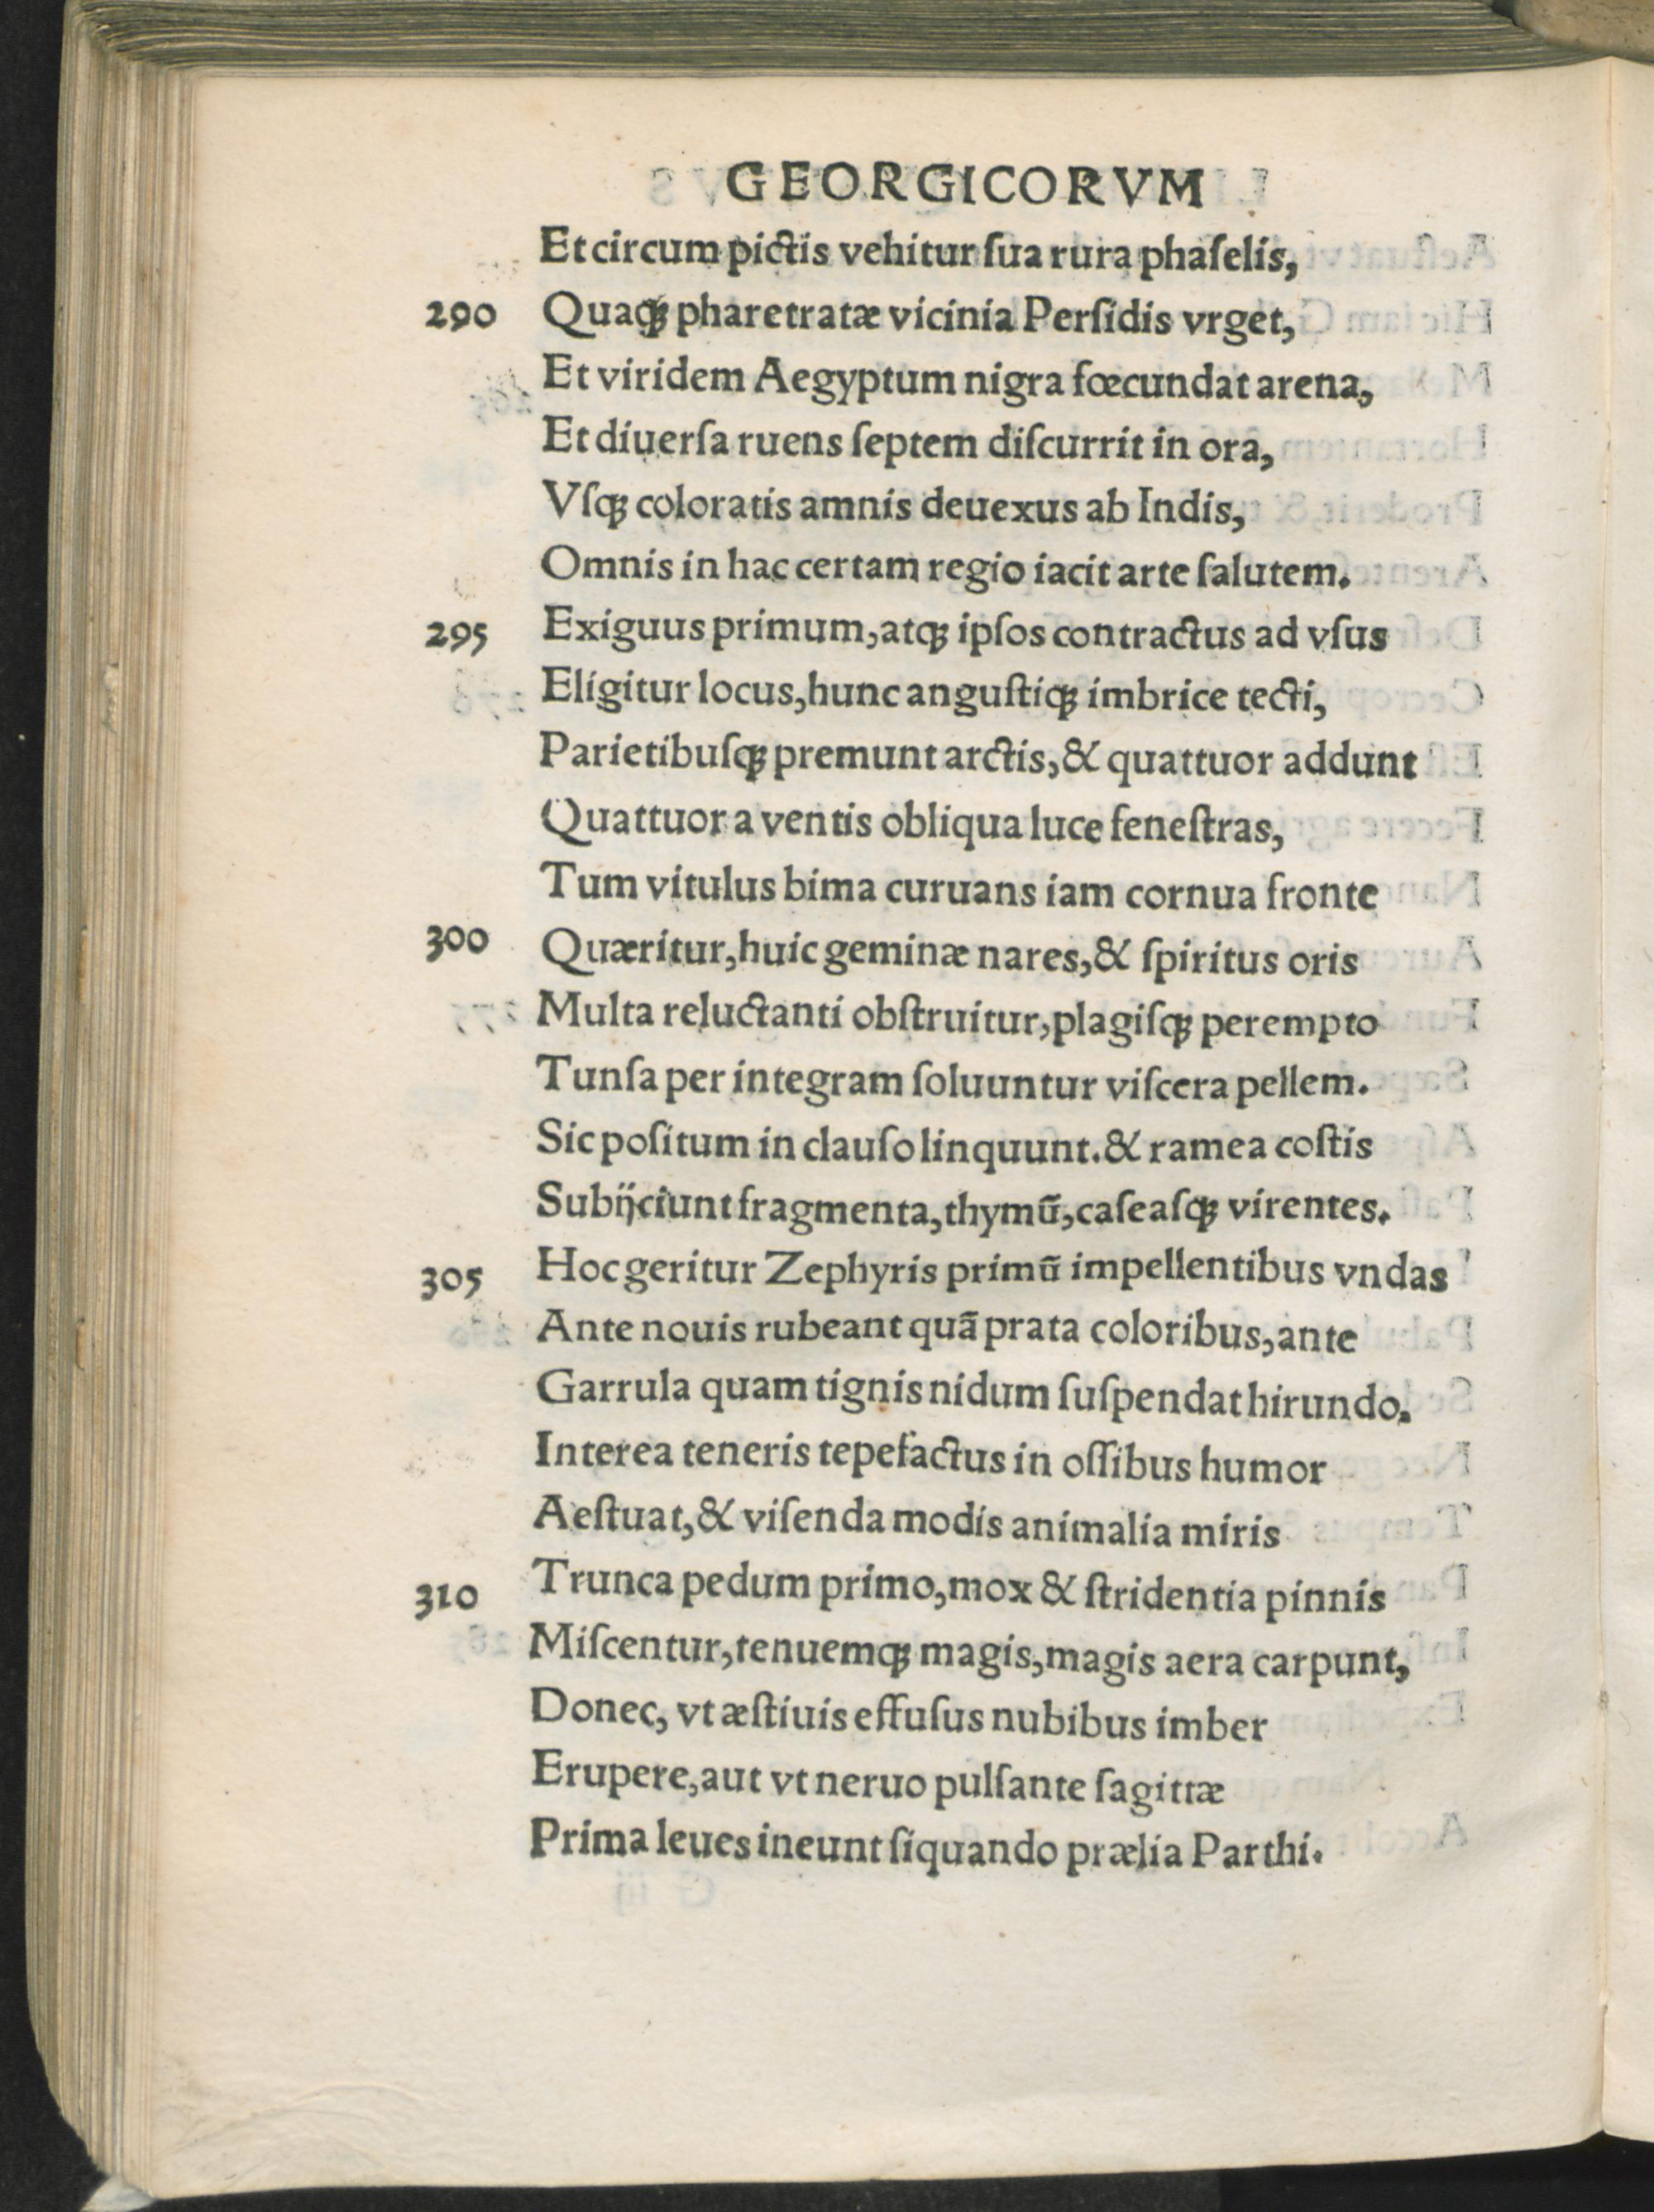 GEORGICORVM
Et circum pictis vehitur ſua rura phaſelis,
290 Quaq; pharetratæ vicinia Perſidis vrget,
Et viridem Aegyptum nigra fœcundat arena,
Et diuerſa ruens ſeptem diſcurrit in ora,
Vſq; coloratis amnis deuexus ab Indis,
Omnis in hac certam regio iacit arte ſalutem.
295 Exiguus primum, atq; ipſos contractus ad vſus
Eligitur locus, hunc anguſtiq; imbrice tecti,
Parietibuſq; premunt arctis, & quattuor addunt
Quattuor a ventis obliqua luce feneſtras,
Tum vitulus bima curuans iam cornua fronte
300 Quæritur, huic geminæ nares, & ſpiritus oris
Multa reluctanti obſtruitur, plagiſq; perempto
Tunſa per integram ſoluuntur viſcera pellem.
Sic poſitum in clauſo linquunt. & ramea coſtis
Subijciunt fragmenta, thymũ, caſeaſq; virentes.
305 Hoc geritur Zephyris primũ impellentibus vndas
Ante nouis rubeant quã prata coloribus, ante
Garrula quam tignis nidum ſuſpendat hirundo.
Interea teneris tepefactus in oſſibus humor
Aeſtuat, & viſenda modis animalia miris
310 Trunca pedum primo, mox & ſtridentia pinnis
Miſcentur, tenuemq; magis, magis aera carpunt,
Donec, vt æſtiuis effuſus nubibus imber
Erupere, aut vt neruo pulſante ſagittæ
Prima leues ineunt ſiquando prælia Parthi.